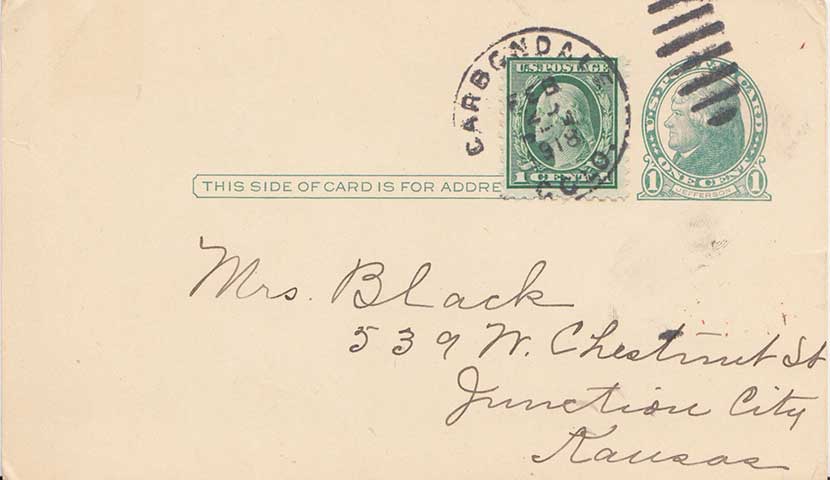 CARBONDALE
COLO.
FEB
1918
U.S. POSTAGE
1 CENT 
U.S. POSTAL CARD
1 ONE CENT 1
JEFFERSON
THIS SIDE OF CARD IS FOR ADDRE
Mrs. Black
539 W. Chestnut St
Junction City
Kansas